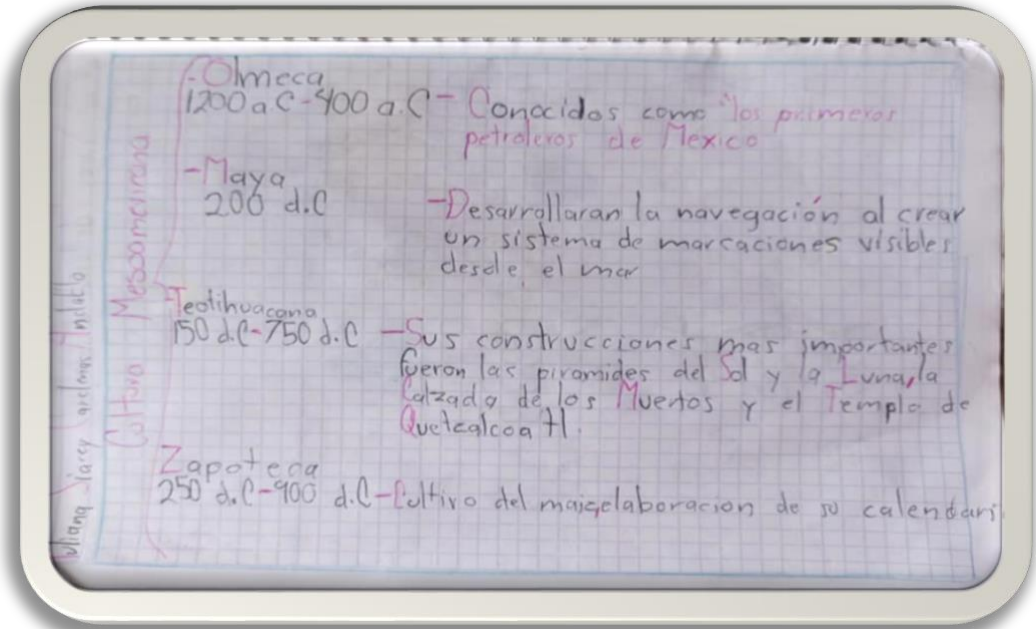 Cultura Mesoamericana
-Olmeca
1200 a C-400 a.C - Conocidos como "los primeros
petroleros de Mexico
-Maya
200 d.C
-Desarrollaran la navegación al crear
un sistema de marcaciones visibles
desde el mar
Teotihuacana
150 d.C-750 d.C -Sus construcciones mas importantes
fueron las piramides del Sol y la Luna, la
Calzada de los Muertos y el Templo de
Quetzalcoatl.
Zapoteca
250 d.C-900 d.C-Cultivo del maiz,elaboracion de su calendari